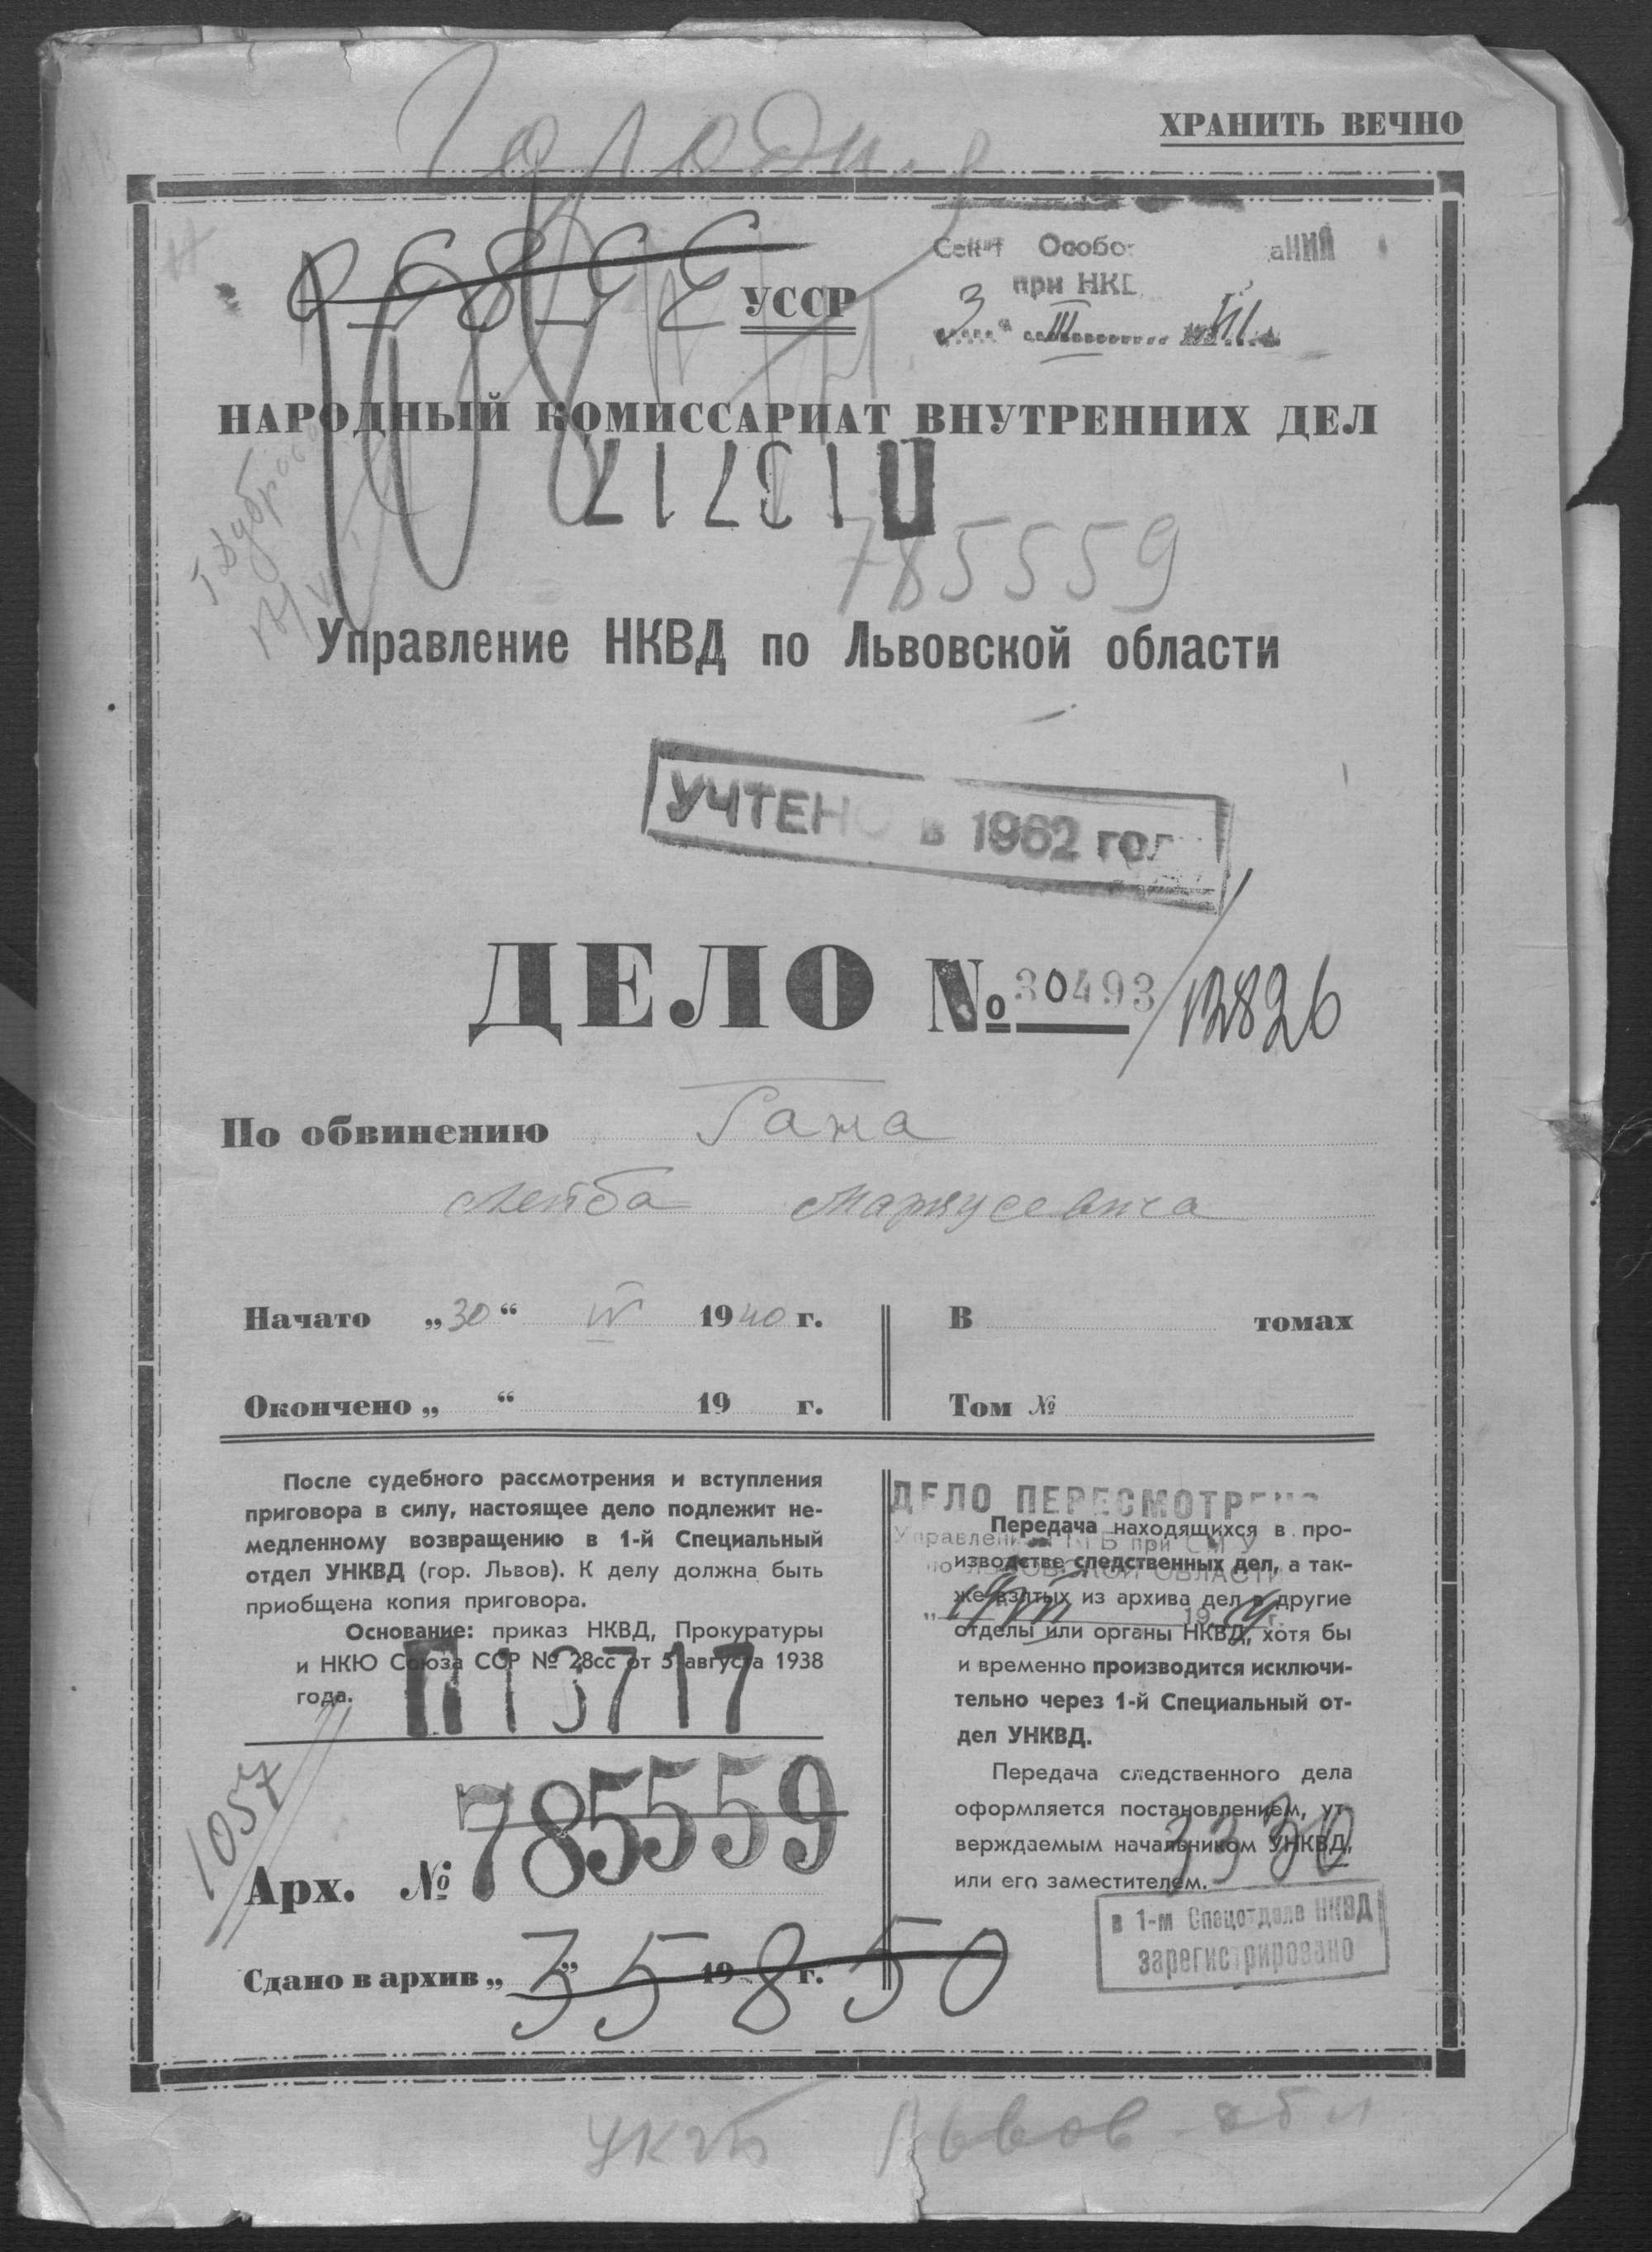 ХРАНИТЬ ВЕЧНО
УССР
при НКВ
3 III
НАРОДНЫЙ КОМИССАРИАТ ВНУТРЕННИХ ДЕЛ
П13717
785559
Управление НКВД по Львовской области
УЧТЕНО в 1962 году
ДЕЛО № 30493/12826
По обвинению Гана
Лейба Маркусевича
Начато „30“ IV 1940 г.
В томах
Окончено „ “ 19 г.
Том №
После судебного рассмотрения и вступления
приговора в силу, настоящее дело подлежит не-
медленному возвращению в 1-й Специальный
отдел УНКВД (гор. Львов). К делу должна быть
приобщена копия приговора.
Основание: приказ НКВД, Прокуратуры
и НКЮ Союза ССР № 28сс от 5 августа 1938
года.
П13717
1057
Арх. № 785559
Сдано в архив „ “ 19 г.
35850
ДЕЛО ПЕРЕСМОТРЕНО
Передача находящихся в про-
изводстве следственных дел, а так-
же взятых из архива дел в другие
отделы или органы НКВД, хотя бы
и временно производится исключи-
тельно через 1-й Специальный от-
дел УНКВД.
Передача следственного дела
оформляется постановлением, ут-
верждаемым начальником УНКВД,
или его заместителем.
3330
в 1-м Спецотделе НКВД
зарегистрировано
УКГБ Львов. обл